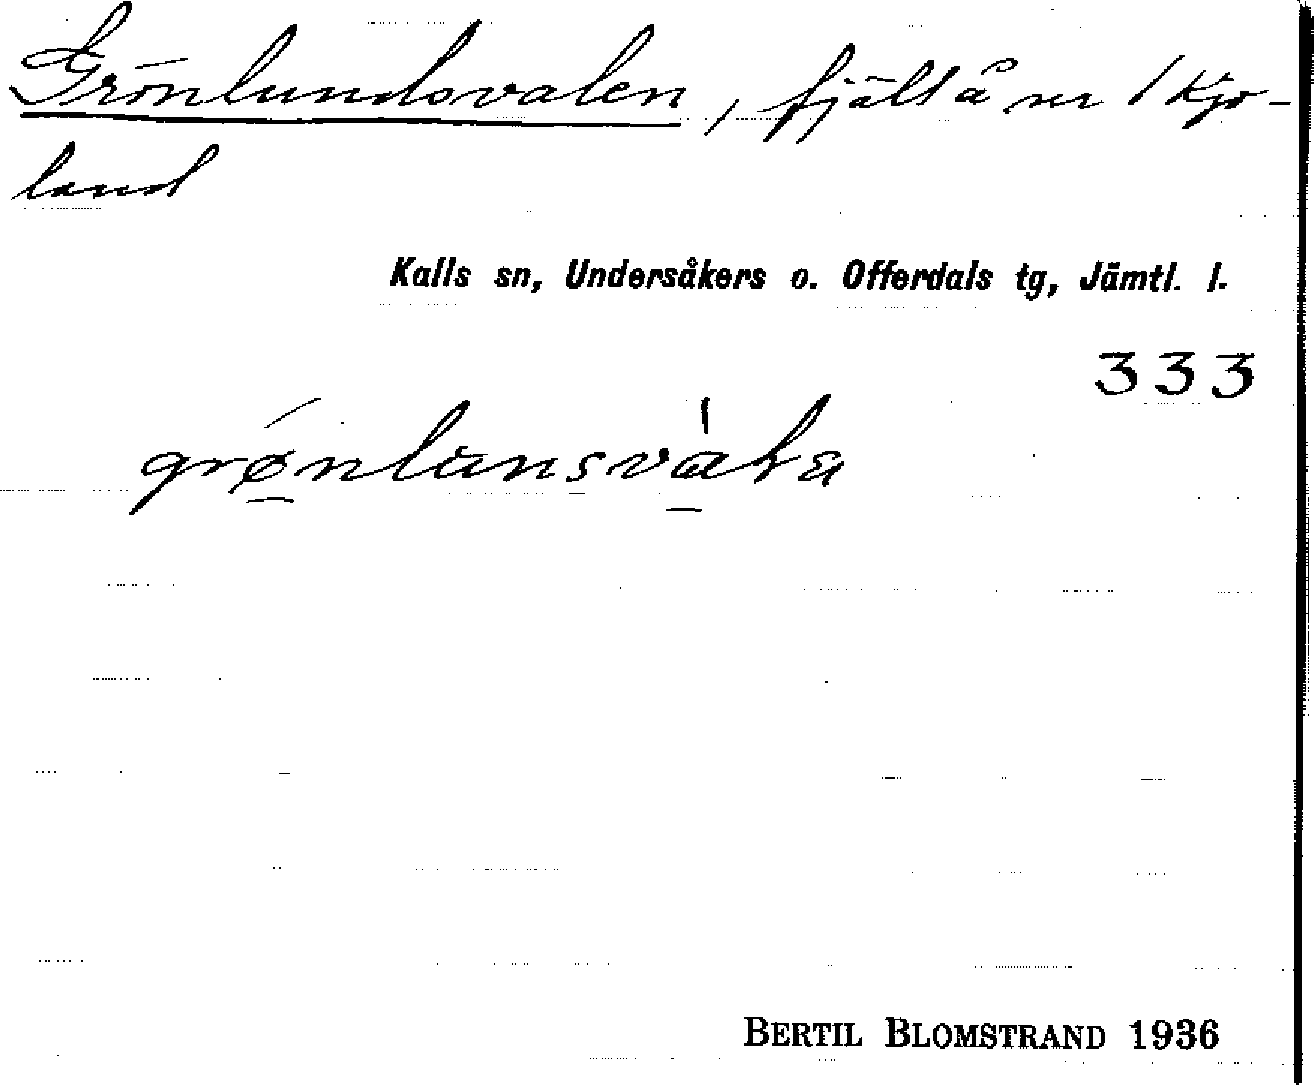 Grönlundsvalen, fjällåser i Kjo-
land
Kalls sn, Undersåkers o. Offerdals tg, Jämtl. l.
333
grønlunsvàla
BERTIL BLOMSTRAND 1936